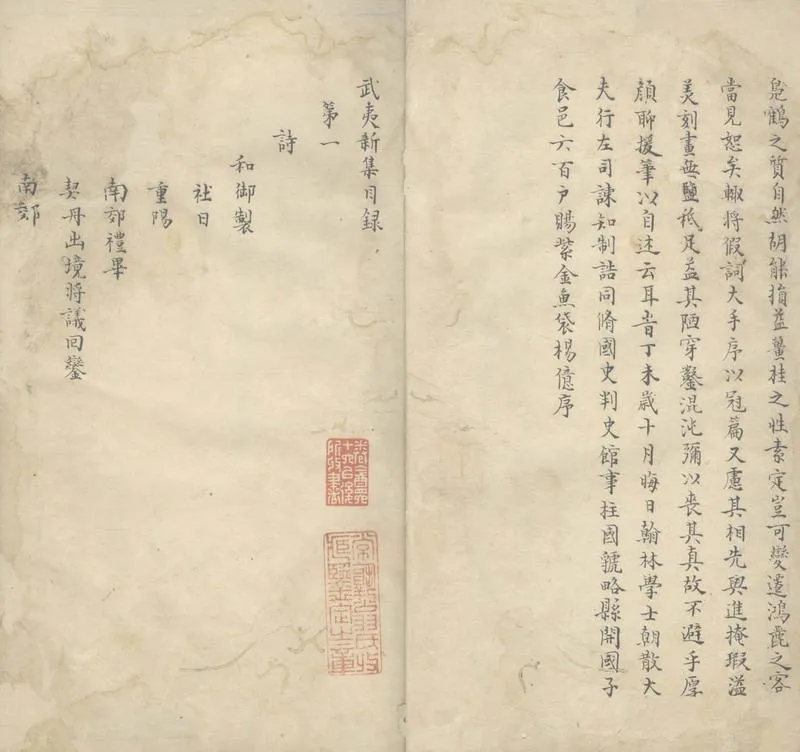 鳬鶴之質自然胡能損益薑桂之性素定豈可變遷鴻麗之客
當見恕矣輙將假詞大手序以冠篇又慮其相先與進掩瑕溢
美刻畫無鹽秪足益其陋穿鑿混沌彌以喪其真故不避乎厚
顏聊援筆以自述云耳旹丁未歲十月晦日翰林學士朝散大
夫行左司諫知制誥同脩國史判史館事柱國虢略縣開國子
食邑六百户賜紫金魚袋楊億序
武夷新集目録
第一
詩
和御製
社日
重陽
南郊禮畢
契丹出境將議回鑾
南郊